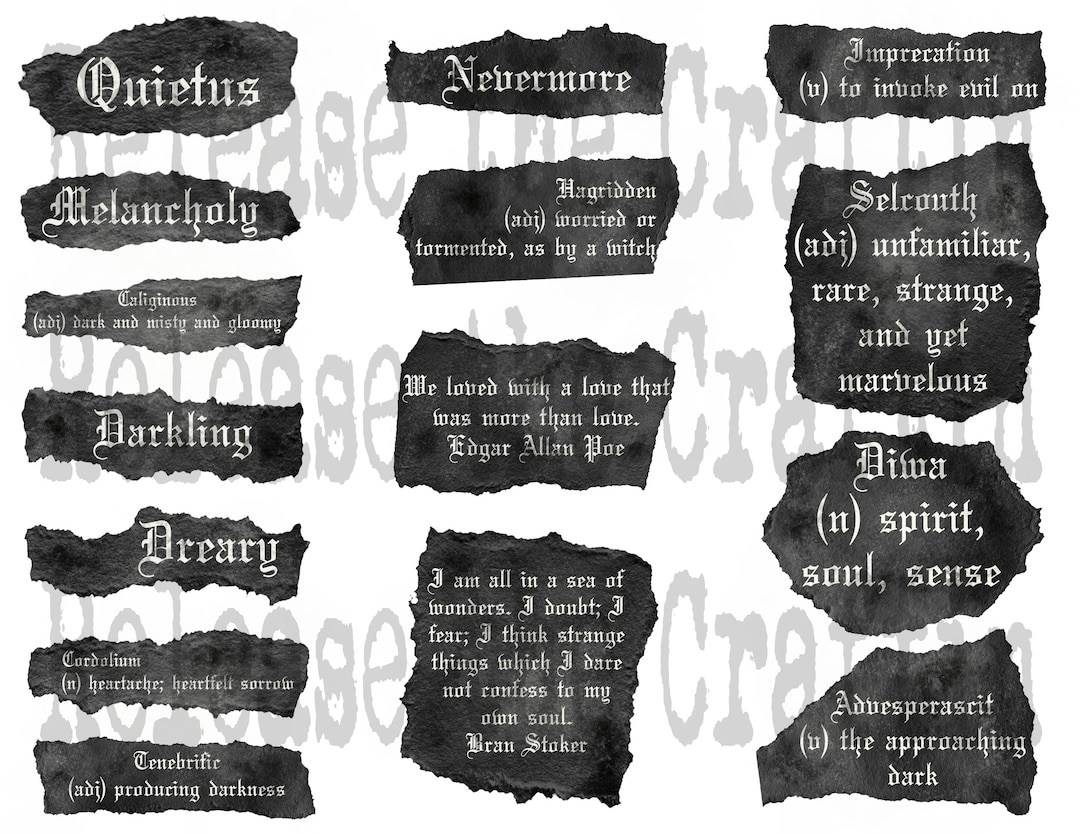 Quietus
Melancholy
Caliginous
(adj) dark and misty and gloomy
Darkling
Dreary
Cordolium
(n) heartache; heartfelt sorrow
Tenebrific
(adj) producing darkness
Nevermore
Hagridden
(adj) worried or
tormented, as by a witch
We loved with a love that
was more than love.
Edgar Allan Poe
I am all in a sea of
wonders. I doubt; I
fear; I think strange
things which I dare
not confess to my
own soul.
Bran Stoker
Imprecation
(v) to invoke evil on
Selcouth
(adj) unfamiliar,
rare, strange,
and yet
marvelous
Diwa
(n) spirit,
soul, sense
Advesperascit
(v) the approaching
dark
Release the Craftin
Release the Craftin
Release the Craftin